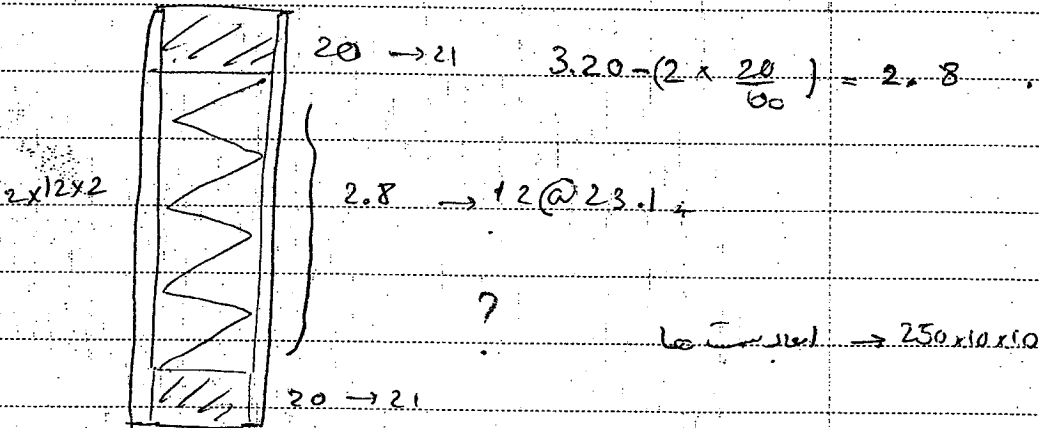 20 → 21
3.20-(2 x 20/100) = 2.8
2x12x2
2.8 → 12@23.1
?
ابعاد بست ها → 250x10x10
20 → 21